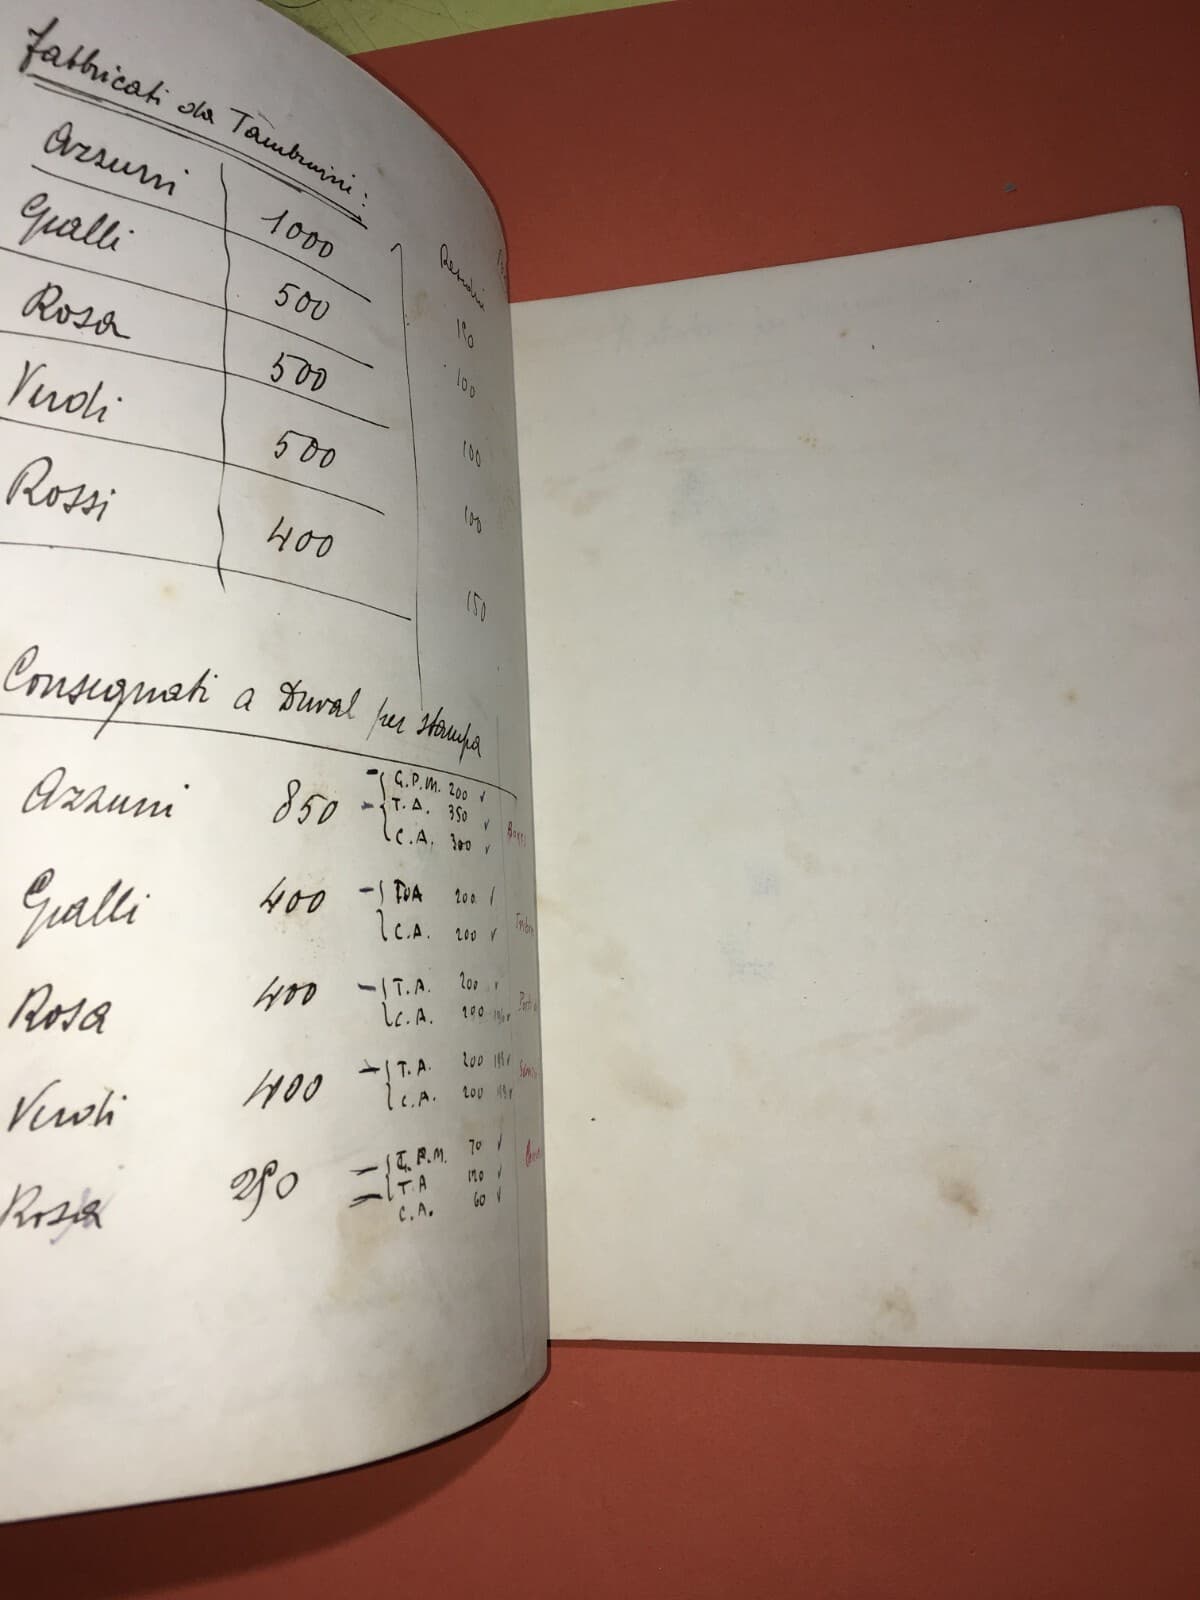 Fabbricati da Tamburini:
Azzurri 1000
Gialli 500
Rosa 500
Verdi 500
Rossi 400
Residui
150
100
100
100
150
Consegnati a Duval per stampa
Azzurri 850 G.P.M. 200 ✓
T.A. 350 ✓
C.A. 300 ✓
Gialli 400 T.A. 200 ✓
C.A. 200 ✓
Rosa 400 T.A. 200 ✓
C.A. 200
Verdi 400 T.A. 200
C.A. 200
250 G.P.M. 70 ✓
T.A 120 ✓
C.A. 60 ✓